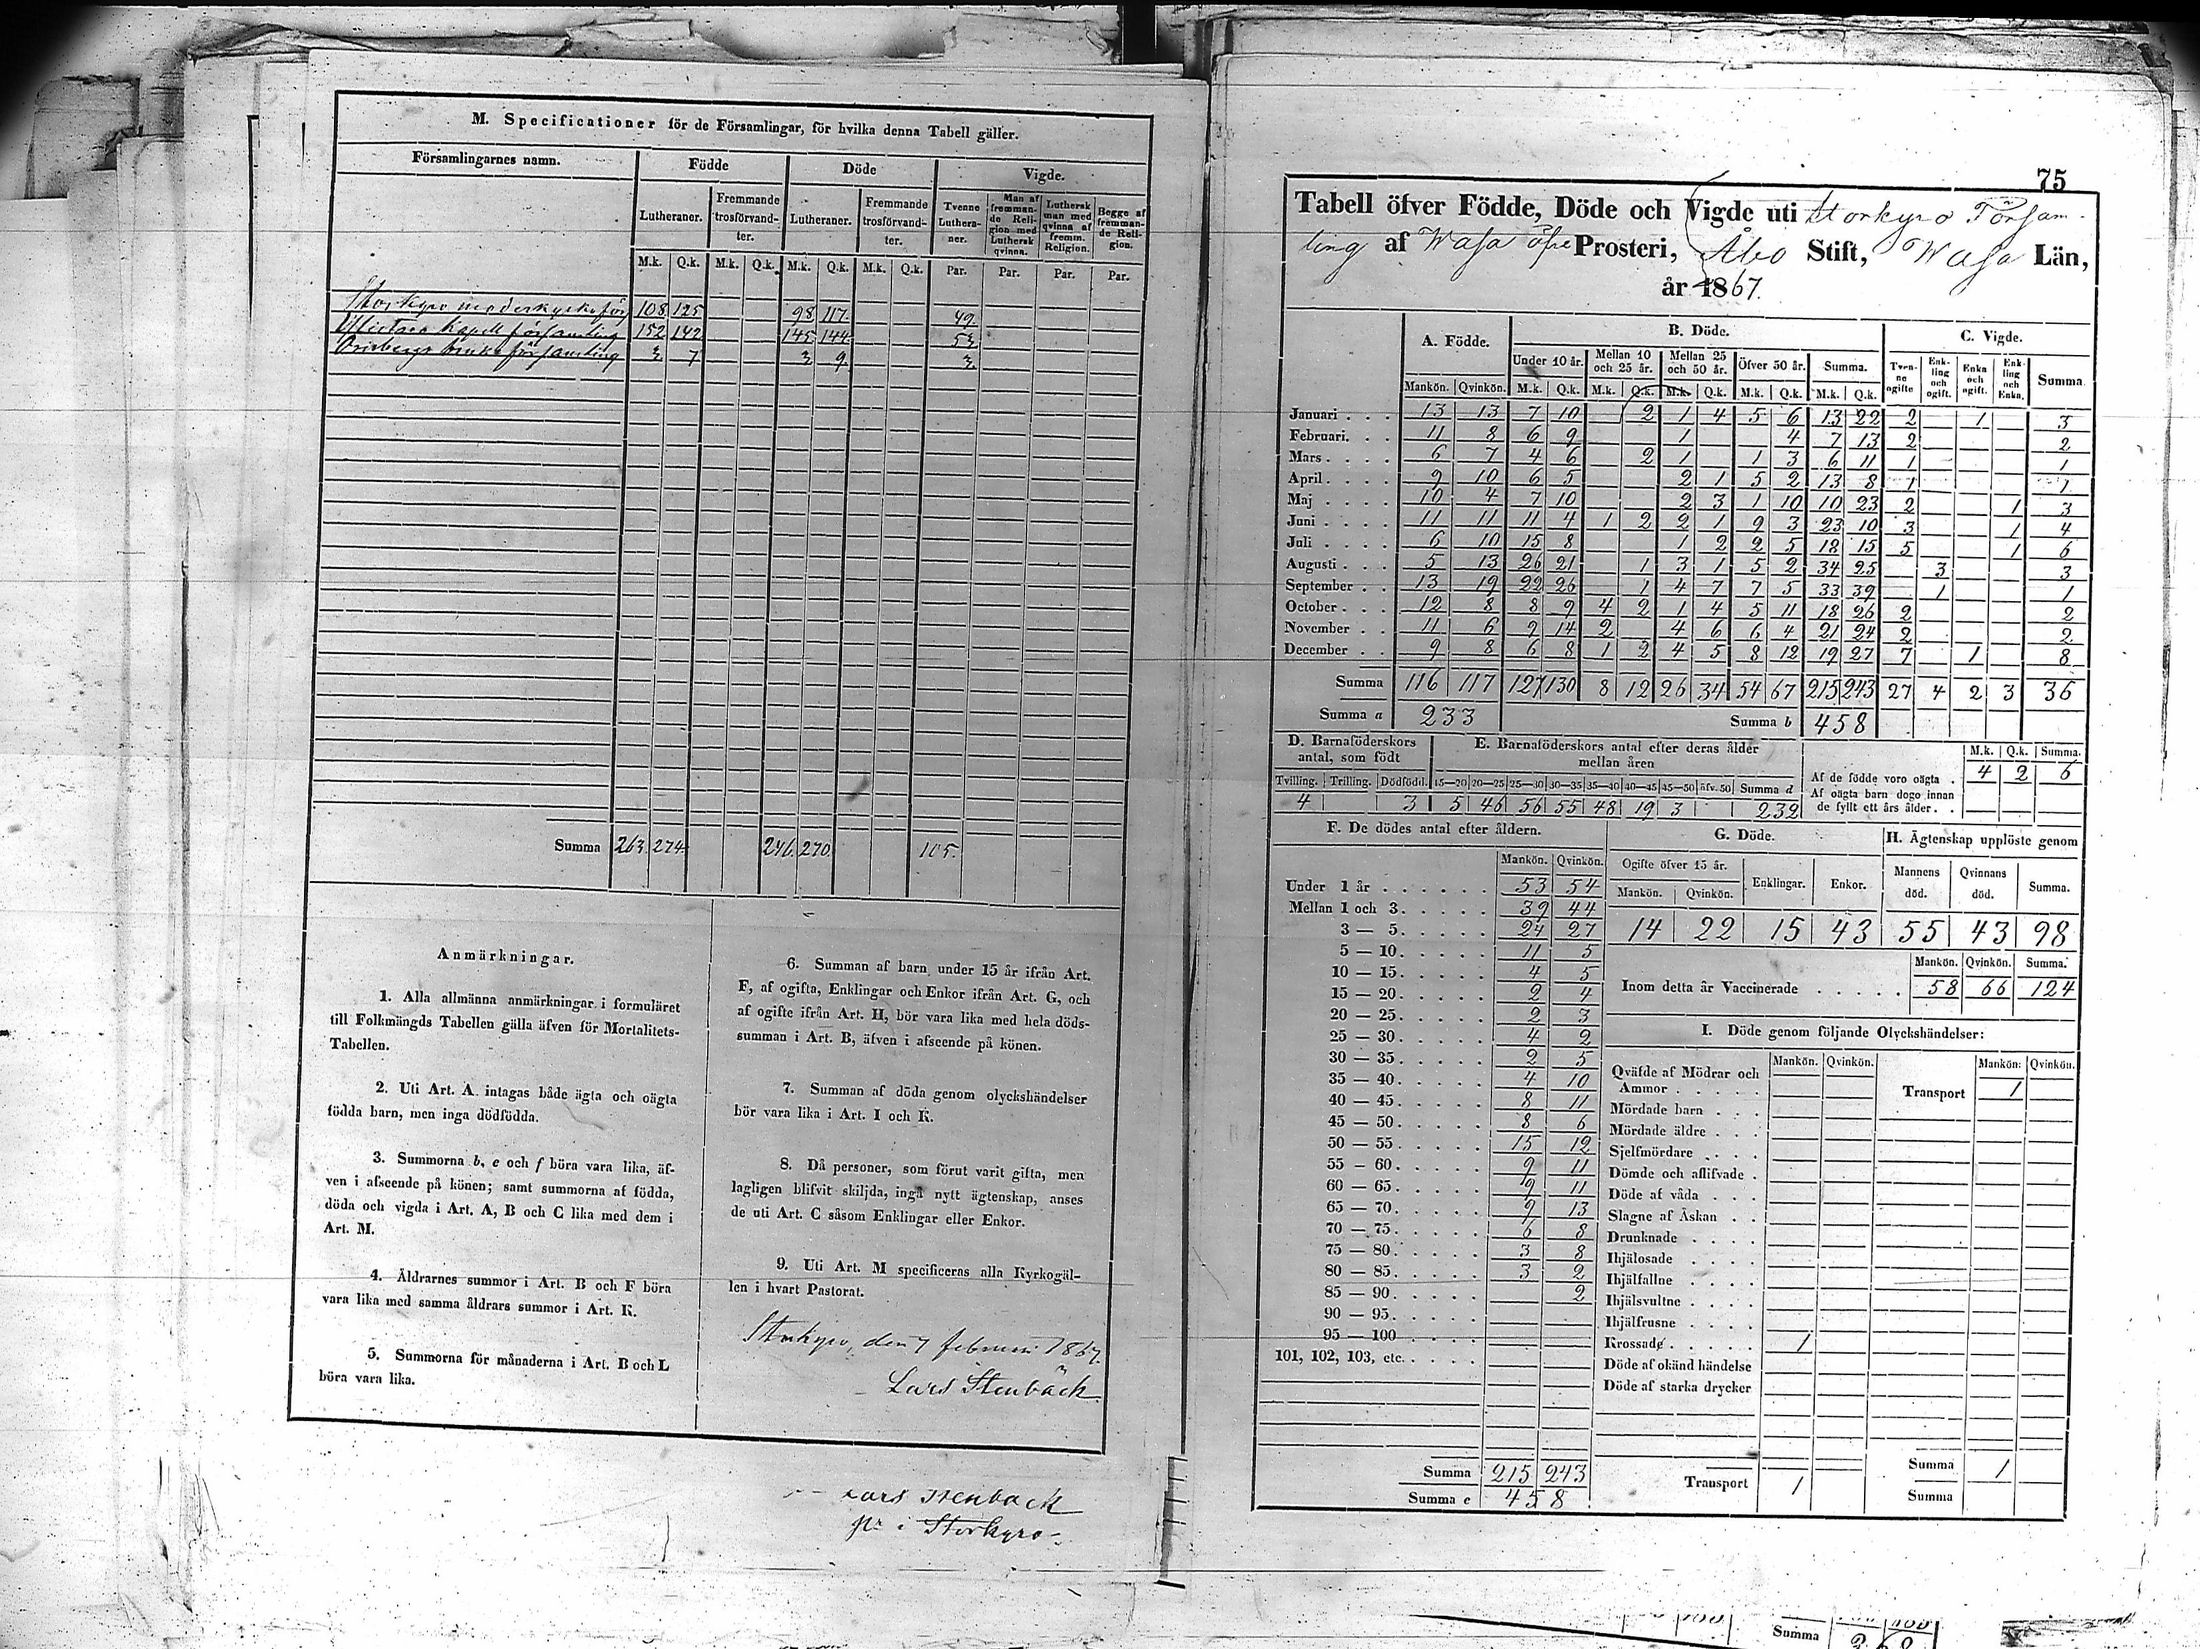 M. Specificationer för de Församlingar, för hvilka denna Tabell gäller.
Församlingarnes namn. Födde Döde Vigde.
Lutheraner. Fremmande trosförvandter. Lutheraner. Fremmande trosförvandter. Tvenne Lutheraner. Man af fremmande Religion med Luthersk qvinna. Luthersk man med qvinna af fremm. Religion. Begge af fremmande Religion.
M.k. Q.k. M.k. Q.k. M.k. Q.k. M.k. Q.k. Par. Par. Par. Par.
Storkyro moderkyrkoför 108 125 98 117 49
Ylistaro Kapell församling 152 142 145 144 53
Orisbergs bruks församling 3 7 3 9 3
Summa 263. 274. 246. 270. 105.
Anmärkningar.
1. Alla allmänna anmärkningar i formuläret
till Folkmängds Tabellen gälla äfven för Mortalitets-
Tabellen.
2. Uti Art. A. intagas både ägta och oägta
födda barn, men inga dödfödda.
3. Summorna b, e och f böra vara lika, äf-
ven i afseende på könen; samt summorna af födda,
döda och vigda i Art. A, B och C lika med dem i
Art. M.
4. Åldrarnes summor i Art. B och F böra
vara lika med samma åldrars summor i Art. K.
5. Summorna för månaderna i Art. B och L
böra vara lika.
6. Summan af barn under 15 år ifrån Art.
F, af ogifta, Enklingar och Enkor ifrån Art. G, och
af ogifte ifrån Art. H, bör vara lika med hela döds-
summan i Art. B, äfven i afseende på könen.
7. Summan af döda genom olyckshändelser
bör vara lika i Art. I och K.
8. Då personer, som förut varit gifta, men
lagligen blifvit skiljda, ingå nytt ägtenskap, anses
de uti Art. C såsom Enklingar eller Enkor.
9. Uti Art. M specificeras alla Kyrkogäl-
len i hvart Pastorat.
Storkyro, den 7 februari 1867.
Lars Stenbäck
Lars Stenback
pr i Storkyro
75
Tabell öfver Födde, Döde och Vigde uti Storkyro Församling
af Wasa öfre Prosteri, Åbo Stift, Wasa Län,
år 1867.
A. Födde. B. Döde. C. Vigde.
Under 10 år. Mellan 10 och 25 år. Mellan 25 och 50 år. Öfver 50 år. Summa. Tvenne ogifte Enkling och ogift. Enka och ogift. Enkling och Enka. Summa
Mankön. Qvinkön. M.k. Q.k. M.k. Q.k. M.k. Q.k. M.k. Q.k. M.k. Q.k.
Januari 13 13 7 10 2 1 4 5 6 13 22 2 1 3
Februari 11 8 6 9 1 4 7 13 2 2
Mars 6 7 4 6 2 1 1 3 6 11 1 1
April 9 10 6 5 2 1 5 2 13 8 1 1
Maj 10 4 7 10 2 3 1 10 10 23 2 1 3
Juni 11 11 11 4 1 2 2 1 9 3 23 10 3 1 4
Juli 6 10 15 8 1 2 2 5 18 15 5 1 6
Augusti 5 13 26 21 1 3 1 5 2 34 25 3 3
September 13 19 22 26 1 4 7 7 5 33 39 1 1
October 12 8 8 9 4 2 1 4 5 11 18 26 2 2
November 11 6 9 14 2 4 6 6 4 21 24 2 2
December 9 8 6 8 1 2 4 5 8 12 19 27 7 1 8
Summa 116 117 127 130 8 12 26 34 54 67 215 243 27 4 2 3 36
Summa a 233 Summa b 458
D. Barnaföderskors antal, som födt
Tvilling. Trilling. Dödfödd.
4 3
E. Barnaföderskors antal efter deras ålder mellan åren
15—20 20—25 25—30 30—35 35—40 40—45 45—50 öfv. 50 Summa d
5 46 56 55 48 19 3 232
M.k. Q.k. Summa.
Af de födde voro oägta 4 2 6
Af oägta barn dogo innan
de fyllt ett års ålder
F. De dödes antal efter åldern.
Mankön. Qvinkön.
Under 1 år 53 54
Mellan 1 och 3 39 44
3 — 5 24 27
5 — 10 11 5
10 — 15 4 5
15 — 20 2 4
20 — 25 2 3
25 — 30 4 2
30 — 35 2 5
35 — 40 4 10
40 — 45 8 11
45 — 50 8 6
50 — 55 15 12
55 — 60 9 11
60 — 65 9 11
65 — 70 9 13
70 — 75 6 8
75 — 80 3 8
80 — 85 3 2
85 — 90 2
90 — 95
95 — 100
101, 102, 103, etc.
Summa 215 243
Summa e 458
G. Döde.
Ogifte öfver 15 år. Enklingar. Enkor.
Mankön. Qvinkön.
14 22 15 43
H. Ägtenskap upplöste genom
Mannens död. Qvinnans död. Summa.
55 43 98
Mankön. Qvinkön. Summa.
Inom detta år Vaccinerade 58 66 124
I. Döde genom följande Olyckshändelser:
Mankön. Qvinkön. Mankön: Qvinkön.
Qväfde af Mödrar och
Ammor Transport 1
Mördade barn
Mördade äldre
Sjelfmördare
Dömde och aflifvade
Döde af våda
Slagne af Åskan
Drunknade
Ihjälosade
Ihjälfallne
Ihjälsvultne
Ihjälfrusne
Krossade 1
Döde af okänd händelse
Döde af starka drycker
Summa 1
Transport 1 Summa
Summa